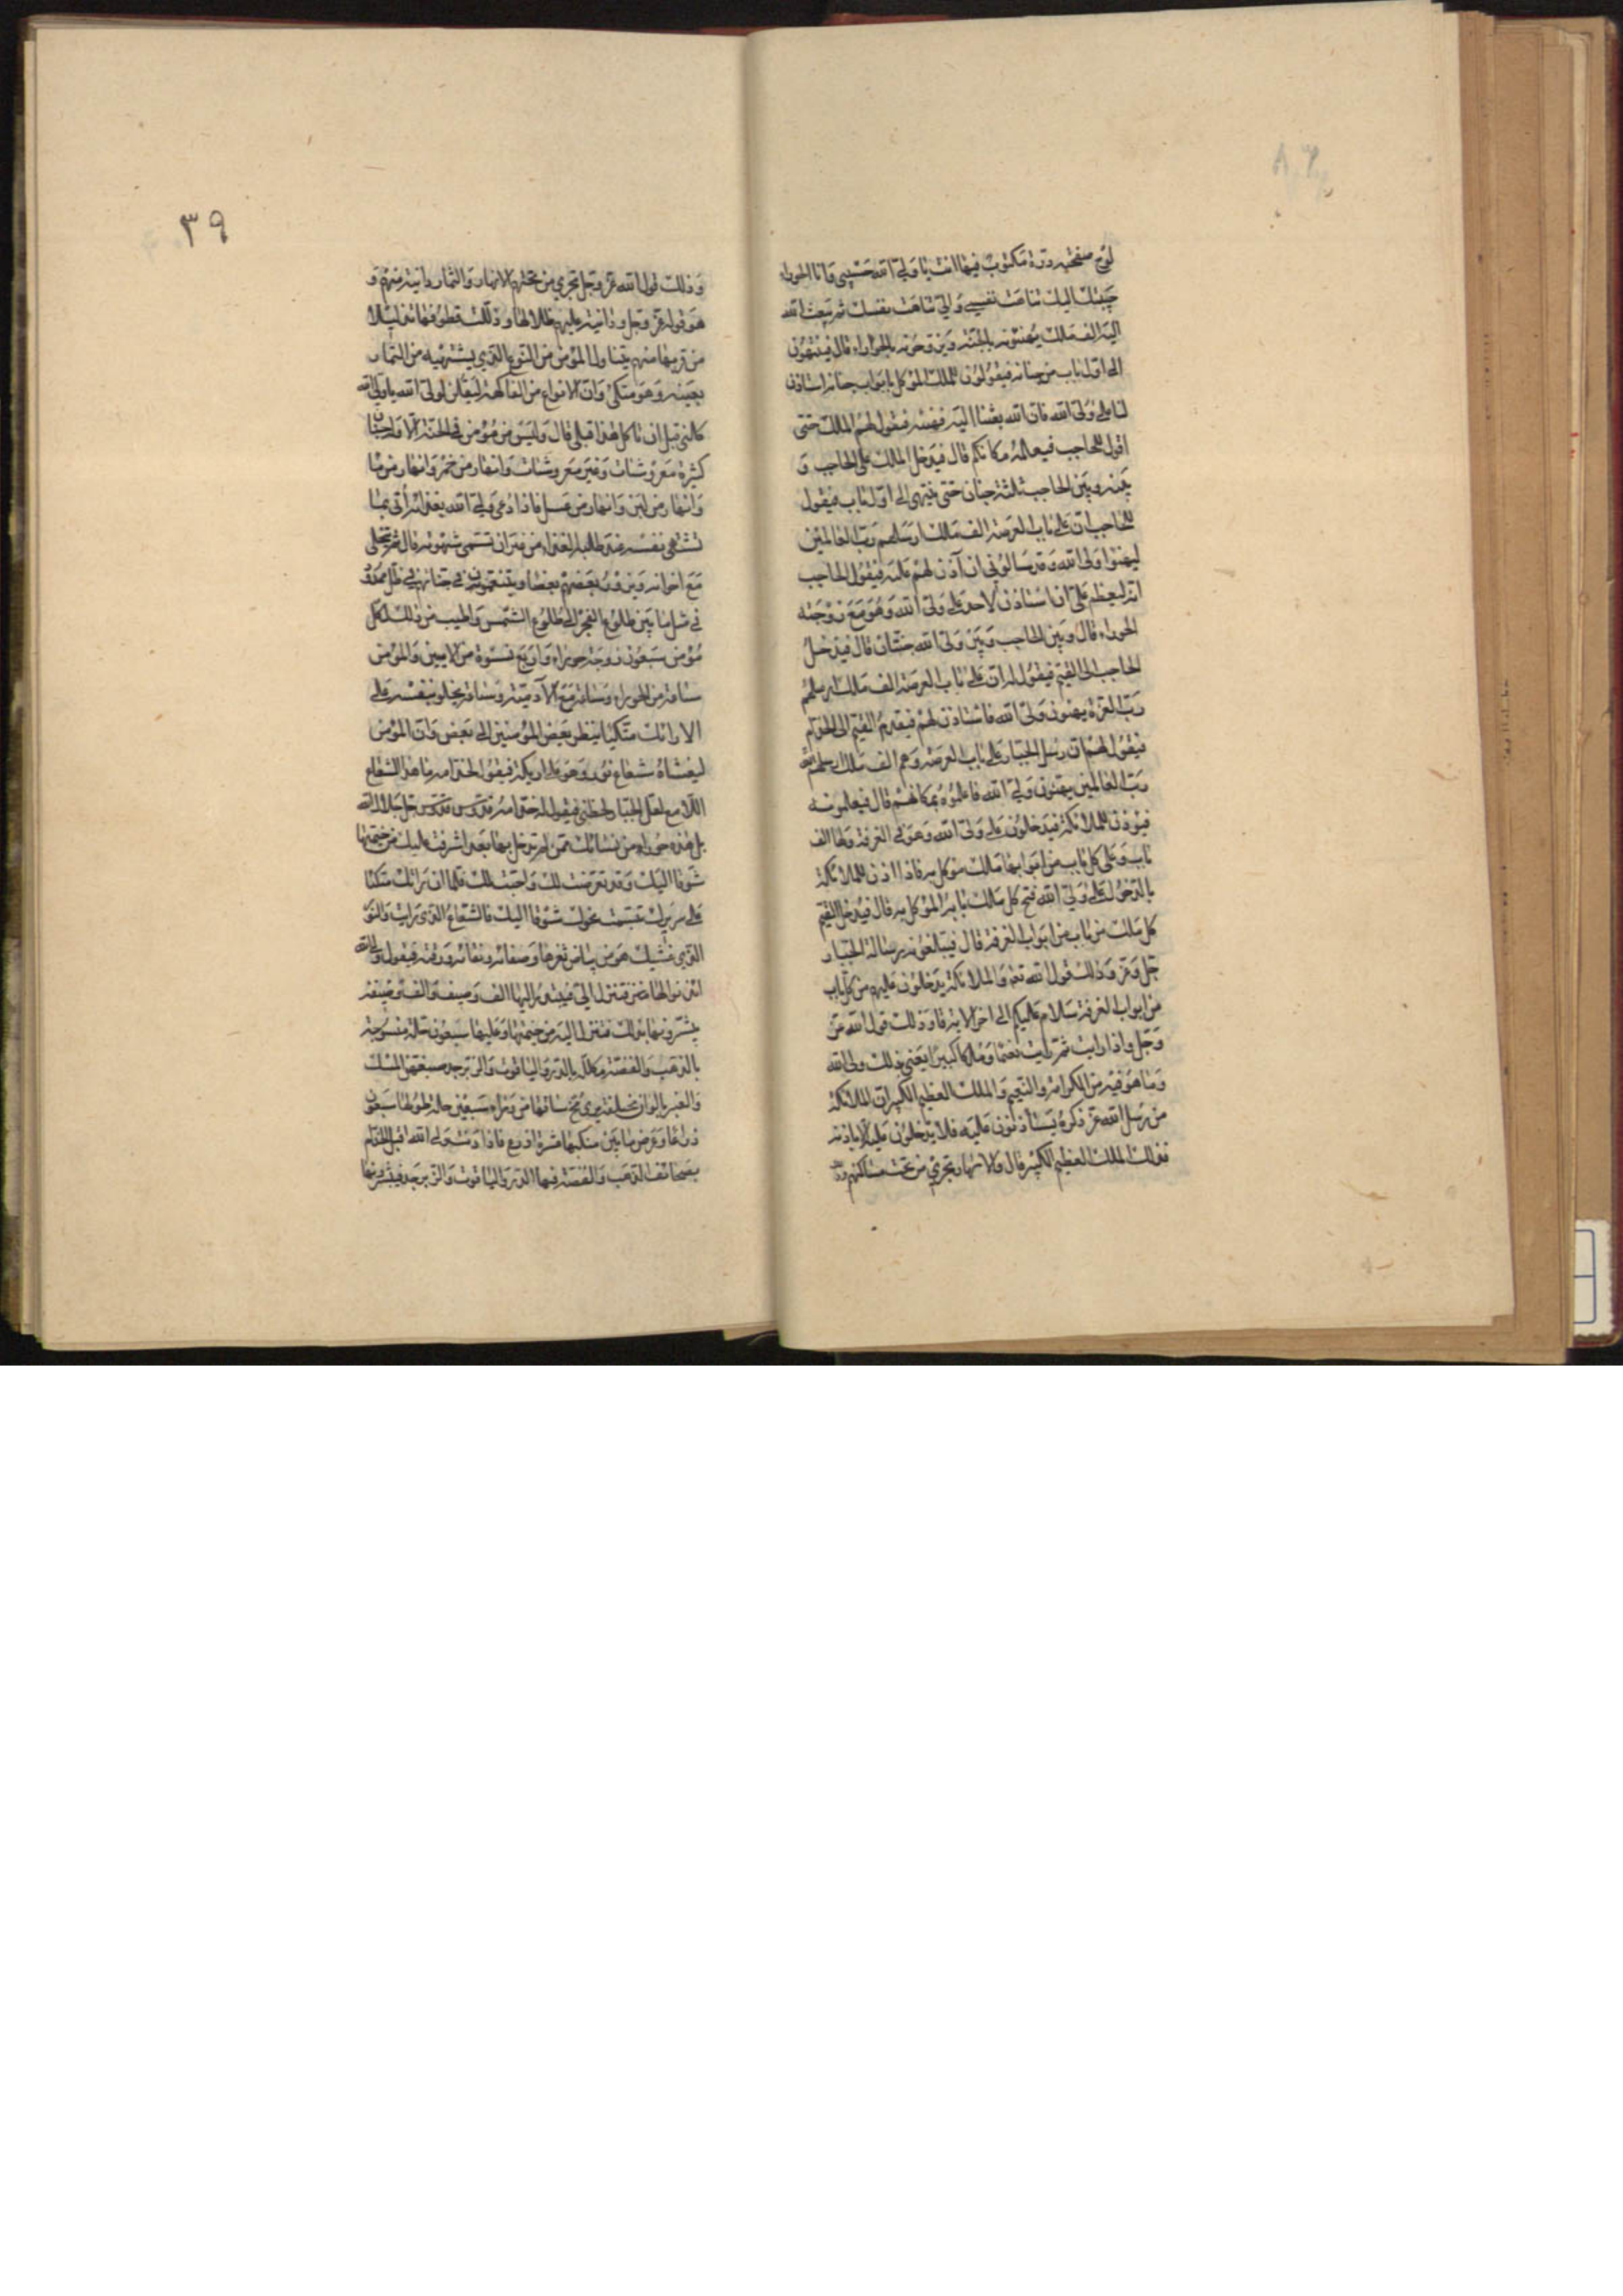 لوح صفحته درة مكتوب فيها انت يا ولي الله حبيبي وانا الحوراء
حبيبتك اليك تناهت نفسي والي تناهت نفسك ثم يبعث الله
اليه الف ملك يهنئونه بالجنة ويزوجونه بالحوراء قال فينتهون
الى اول باب من جنانه فيقولون للملك الموكل بابواب جنانه استاذن
لنا على ولي الله فان الله بعثنا اليه نهنئه فيقول لهم الملك حتى
اقول للحاجب فيعلمه مكانكم قال فيدخل الملك على الحاجب و
بينه وبين الحاجب ثلثة جنان حتى ينتهي الى اول باب فيقول
للحاجب ان على باب العرصة الف ملك ارسلهم رب العالمين
ليهنئوا ولي الله وقد سالوني ان آذن لهم عليه فيقول الحاجب
انه ليعظم علي ان استاذن لاحد على ولي الله وهو مع زوجته
الحوراء قال وبين الحاجب وبين ولي الله جنتان قال فيدخل
الحاجب الى القيم فيقول له ان على باب العرصة الف ملك ارسلهم
رب العزة يهنون ولي الله فاستاذن لهم فيتقدم القيم الى الخدام
فيقول لهم ان رسل الجبار على باب العرصة وهم الف ملك ارسلهم الله
رب العالمين يهنون ولي الله فاعلموه بمكانهم قال فيعلمونه
فيؤذن للملائكة فيدخلون على ولي الله وهو في الغرفة ولها الف
باب وعلى كل باب من ابوابها ملك موكل به فاذا اذن للملائكة
بالدخول على ولي الله فتح كل ملك بابه الموكل به قال فيدخل القيم
كل ملك من باب من ابواب الغرفة قال فيبلغونه رسالة الجبار
جل وعز وذلك قول الله تعه والملائكة يدخلون عليهم من كل باب
من ابواب الغرفة سلام عليكم الى اخر الاية قا وذلك قول الله عز
وجل واذا رايت ثم رايت نعيما وملكا كبيرا يعني بذلك ولي الله
وما هو فيه من الكرامة والنعيم والملك العظيم الكبير ان الملائكة
من رسل الله عز ذكره يستأذنون عليه فلا يدخلون عليه الا باذنه
فذلك الملك العظيم الكبير قال والانهار تجري من تحت مساكنهم
٣٩
وذلك قول الله عز وجل تجري من تحتهم الانهار والثمار دانية منهم و
هو قوله عز وجل ودانية عليهم ظلالها وذللت قطوفها تذليلا
من قربها منهم يتناول المؤمن من النوع الذي يشتهيه من الثمار
بفيه وهو متكئ وان الانواع من الفاكهة ليقلن لولي الله يا ولي الله
كلني قبل ان تاكل هذا قبلي قال وليس من مؤمن في الجنة الا وله جنان
كثيرة معروشات وغير معروشات وانهار من خمر وانهار من ما
وانهار من لبن وانهار من عسل فاذا دعى ولي الله بغذائه أتى بما
تشتهي نفسه عند طلبه الغذاء من غير ان تسمى شهوته قال ثم يتخلى
مع اخوانه ويزور بعضهم بعضا ويتنعمون في جناتهم في ظل ممدود
في مثل ما بين طلوع الفجر الى طلوع الشمس واطيب من ذلك لكل
مؤمن سبعون زوجة حوراء واربع نسوة من الادميين والمؤمن
ساعة من الحوراء وساعة مع الآدمية وساعة يخلو بنفسه على
الارائك متكئا ينظر بعض المؤمنين الى بعض وان المؤمن
ليغشاه شعاع نور وهو على اريكته فيقول لخدامه ما هذا الشعاع
اللامع لعل الجبار لحظني فيقول له خدامه قدوس قدوس جل جلال الله
بل هذه حوراء من نسائك ممن لم تدخل بها بعد اشرفت عليك من خيمتها
شوقا اليك وقد تعرضت لك واحبت لقاءك فلما ان راتك متكئا
على سريرك تبسمت نحوك شوقا اليك فالشعاع الذي رايت والنور
الذي غشيك هو من بياض ثغرها وصفائه ونقائه ورقته فيقول ولي الله
ائذنوا لها فتنزل الي فيبتدر اليها الف وصيف والف وصيفة
يبشرونها بذلك فتنزل اليه من خيمتها وعليها سبعون حلة منسوجة
بالذهب والفضة مكللة بالدر والياقوت والزبرجد صبغهن المسك
والعنبر بالوان مختلفة يرى مخ ساقها من وراء سبعين حلة طولها سبعون
ذراعا وعرض ما بين منكبيها عشرة اذرع فاذا دنت من ولي الله اقبل الخدام
بصحائف الذهب والفضة فيها الدر والياقوت والزبرجد فينثرونها